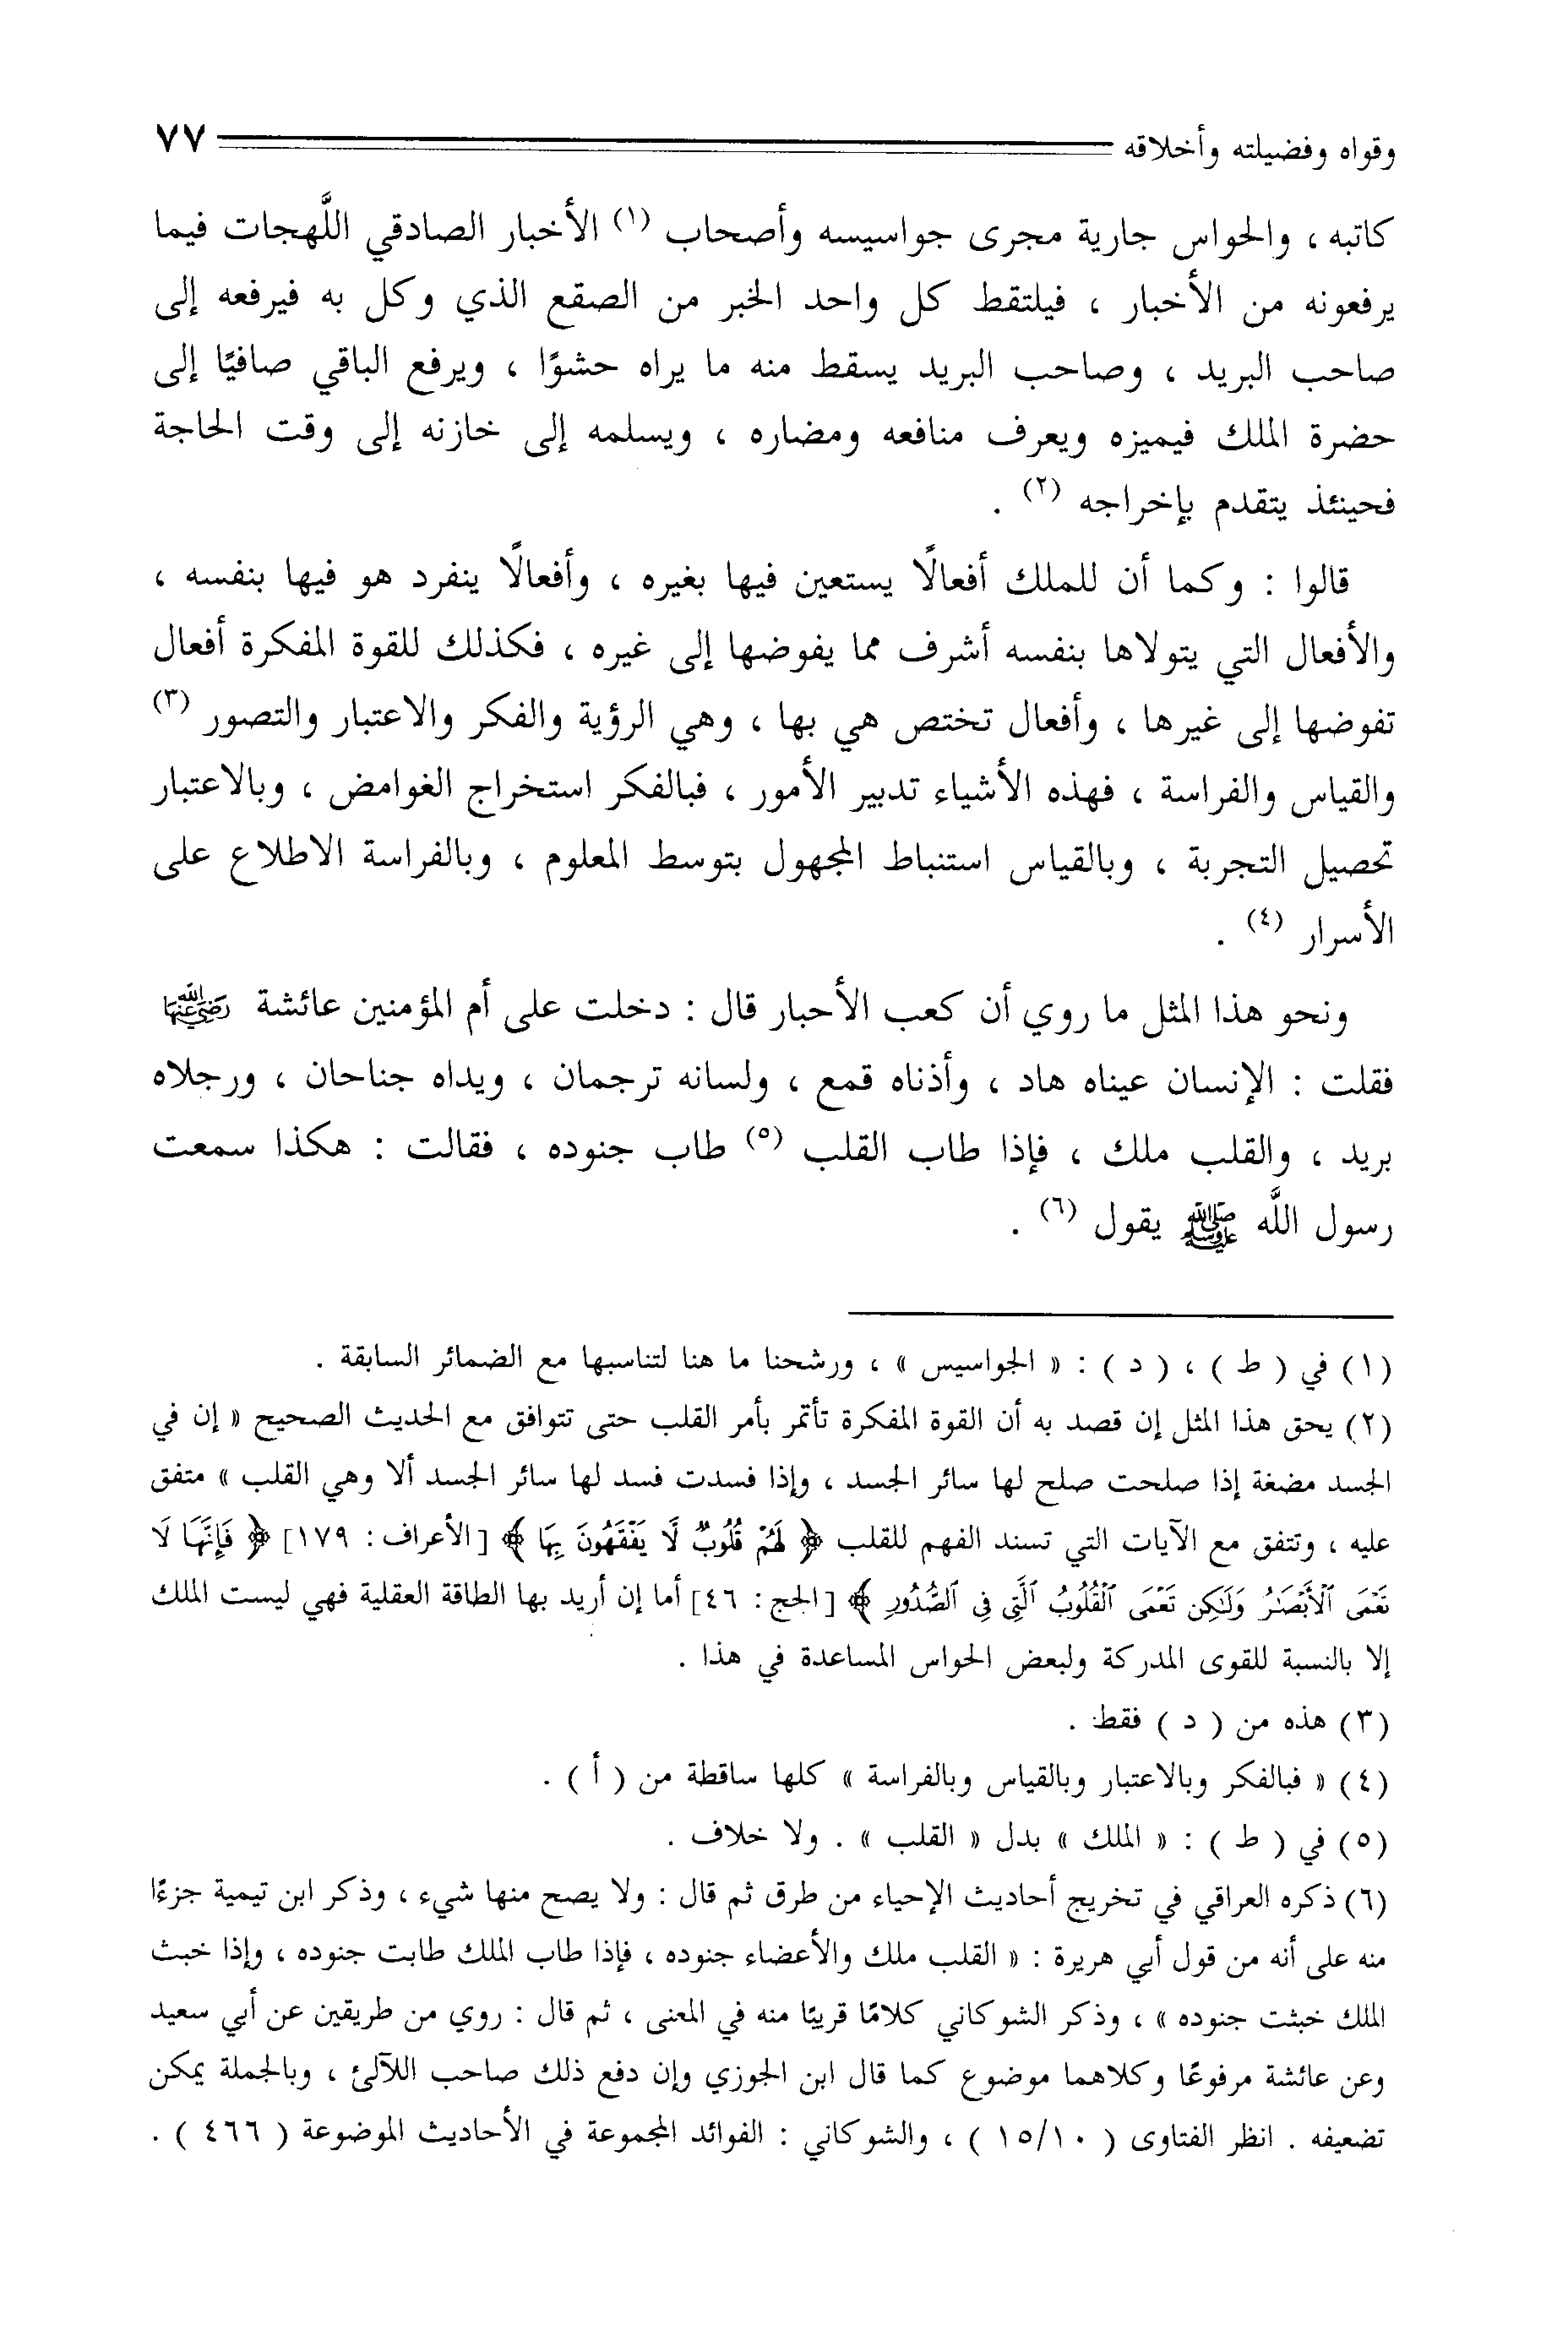 وقواه وفضيلته وأخلاقه ٧٧
كاتبه ، والحواس جارية مجرى جواسيسه وأصحاب (١) الأخبار الصادقي اللَّهجات فيما
يرفعونه من الأخبار ، فيلتقط كل واحد الخبر من الصقع الذي وكل به فيرفعه إلى
صاحب البريد ، وصاحب البريد يسقط منه ما يراه حشوًا ، ويرفع الباقي صافيًا إلى
حضرة الملك فيميزه ويعرف منافعه ومضاره ، ويسلمه إلى خازنه إلى وقت الحاجة
فحينئذ يتقدم بإخراجه (٢) .
قالوا : وكما أن للملك أفعالًا يستعين فيها بغيره ، وأفعالًا ينفرد هو فيها بنفسه ،
والأفعال التي يتولاها بنفسه أشرف مما يفوضها إلى غيره ، فكذلك للقوة المفكرة أفعال
تفوضها إلى غيرها ، وأفعال تختص هي بها ، وهي الرؤية والفكر والاعتبار والتصور (٣)
والقياس والفراسة ، فهذه الأشياء تدبير الأمور ، فبالفكر استخراج الغوامض ، وبالاعتبار
تحصيل التجربة ، وبالقياس استنباط المجهول بتوسط المعلوم ، وبالفراسة الاطلاع على
الأسرار (٤) .
ونحو هذا المثل ما روي أن كعب الأحبار قال : دخلت على أم المؤمنين عائشة رَضِيَ اللهُ عَنْهَا
فقلت : الإنسان عيناه هاد ، وأذناه قمع ، ولسانه ترجمان ، ويداه جناحان ، ورجلاه
بريد ، والقلب ملك ، فإذا طاب القلب (٥) طاب جنوده ، فقالت : هكذا سمعت
رسول اللَّه ﷺ يقول (٦) .
(١) في ( ط ) ، ( د ) : « الجواسيس » ، ورشحنا ما هنا لتناسبها مع الضمائر السابقة .
(٢) يحق هذا المثل إن قصد به أن القوة المفكرة تأتمر بأمر القلب حتى تتوافق مع الحديث الصحيح « إن في
الجسد مضغة إذا صلحت صلح لها سائر الجسد ، وإذا فسدت فسد لها سائر الجسد ألا وهي القلب » متفق
عليه ، وتتفق مع الآيات التي تسند الفهم للقلب ﴿ لَهُمْ قُلُوبٌ لَّا يَفْقَهُونَ بِهَا ﴾ [الأعراف : ١٧٩] ﴿ فَإِنَّهَا لَا
تَعْمَى ٱلْأَبْصَٰرُ وَلَٰكِن تَعْمَى ٱلْقُلُوبُ ٱلَّتِى فِى ٱلصُّدُورِ ﴾ [الحج : ٤٦] أما إن أريد بها الطاقة العقلية فهي ليست الملك
إلا بالنسبة للقوى المدركة ولبعض الحواس المساعدة في هذا .
(٣) هذه من ( د ) فقط .
(٤) « فبالفكر وبالاعتبار وبالقياس وبالفراسة » كلها ساقطة من ( أ ) .
(٥) في ( ط ) : « الملك » بدل « القلب » . ولا خلاف .
(٦) ذكره العراقي في تخريج أحاديث الإحياء من طرق ثم قال : ولا يصح منها شيء ، وذكر ابن تيمية جزءًا
منه على أنه من قول أبي هريرة : « القلب ملك والأعضاء جنوده ، فإذا طاب الملك طابت جنوده ، وإذا خبث
الملك خبثت جنوده » ، وذكر الشوكاني كلامًا قريبًا منه في المعنى ، ثم قال : روي من طريقين عن أبي سعيد
وعن عائشة مرفوعًا وكلاهما موضوع كما قال ابن الجوزي وإن دفع ذلك صاحب اللآلئ ، وبالجملة يمكن
تضعيفه . انظر الفتاوى ( ١٥/١٠ ) ، والشوكاني : الفوائد المجموعة في الأحاديث الموضوعة ( ٤٦٦ ) .